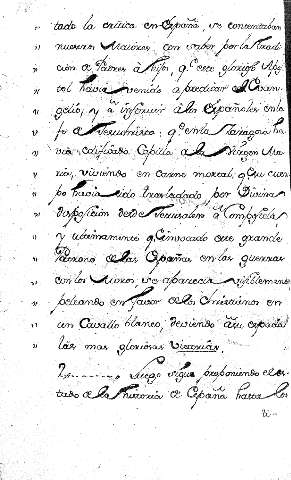 " tado la critica en España, se contentaban
" nuestros Maiores, con saber por la tradi-
" cion de Padres à hijos, qe. este glorioso Apos-
" tol havia venido à predicar el Evan-
" gelio, y à instruir à los Españoles en la
" fe de Jesuchristo; qe. en Zaragoza ha-
" via edificado Capilla à la Virgen Ma-
" ria, viviendo en carne mortal; qe. su cuer-
" po havia sido trasladado por Divina
" disposicion desde Jerusalem à Compostela
" y ultimamente qe. invocado este grande
" Patrono de las Españas en las guerras
" con los Moros, se aparecia visiblemente
" peleando en favor de los Christianos en
" un Cavallo blanco, deviendo à su espada
" las mas gloriosas victorias.
2. Luego sigue proponiendo el es-
tado de la Historia de España hasta los